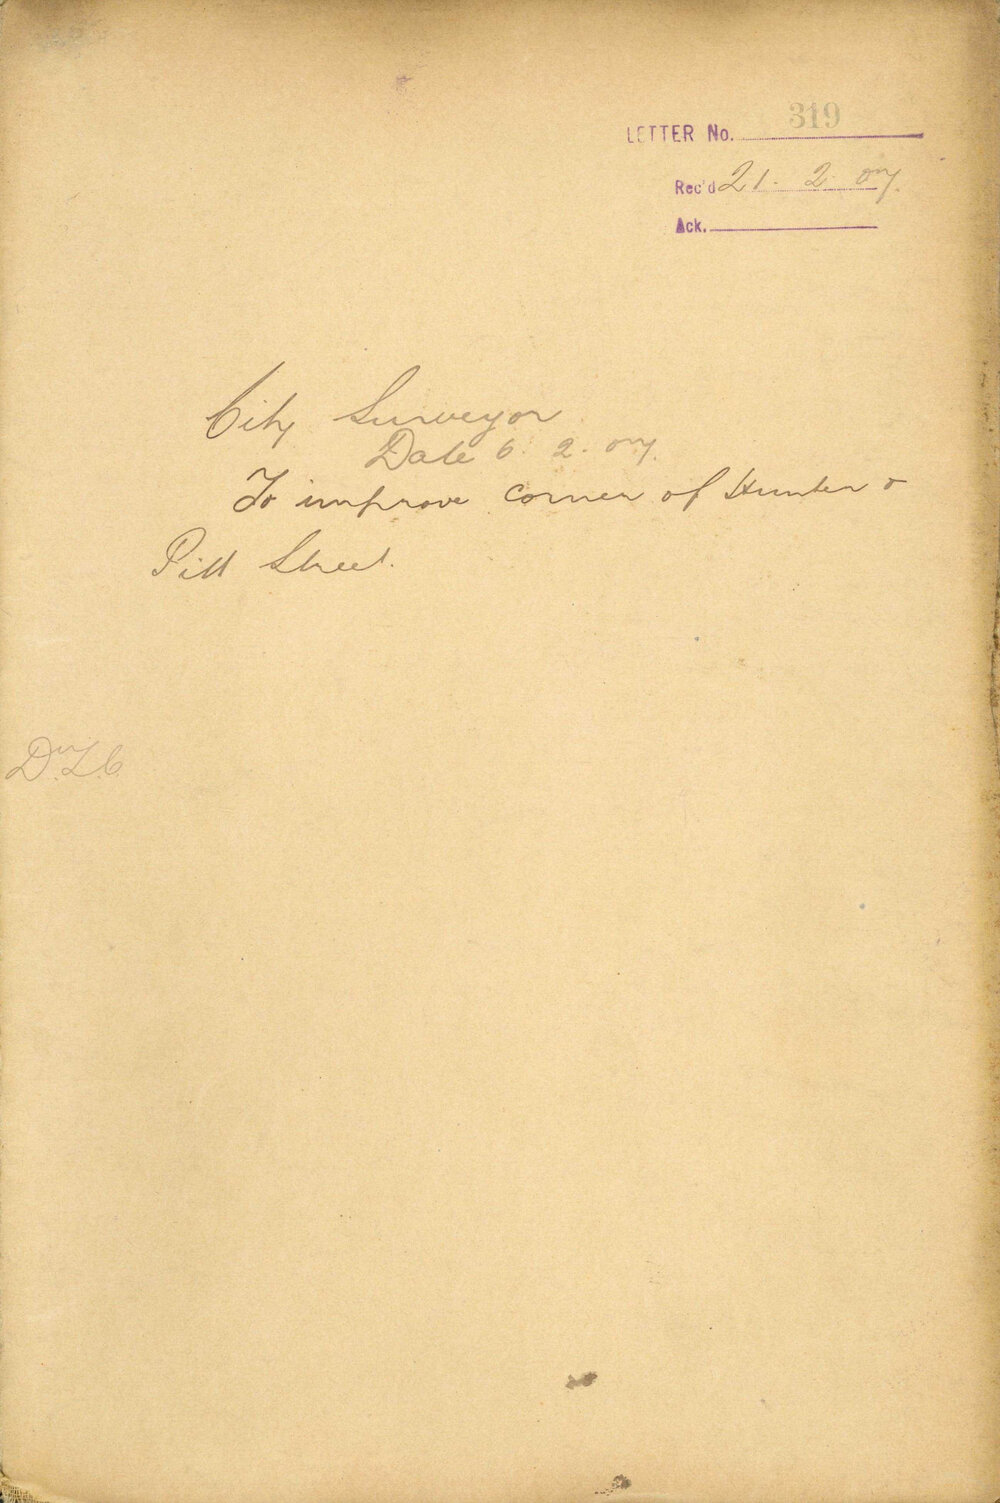 LETTER No. 319
Rec'd 21. 2. 07.
Ack.
City Surveyor
Date 6. 2. 07.
To improve corner of Hunter &
Pitt Street.